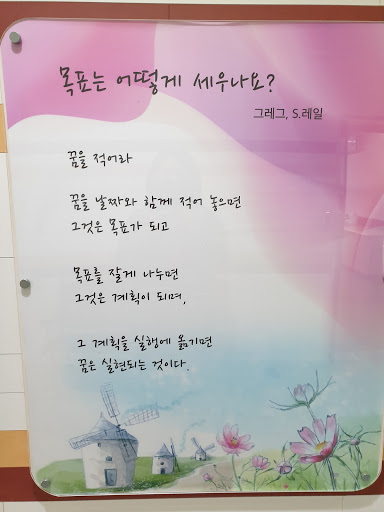 목표는 어떻게 세우나요?
그레그, S.레일
꿈을 적어라
꿈을 날짜와 함께 적어 놓으면
그것은 목표가 되고
목표를 잘게 나누면
그것은 계획이 되며,
그 계획을 실행에 옮기면
꿈은 실현되는 것이다.